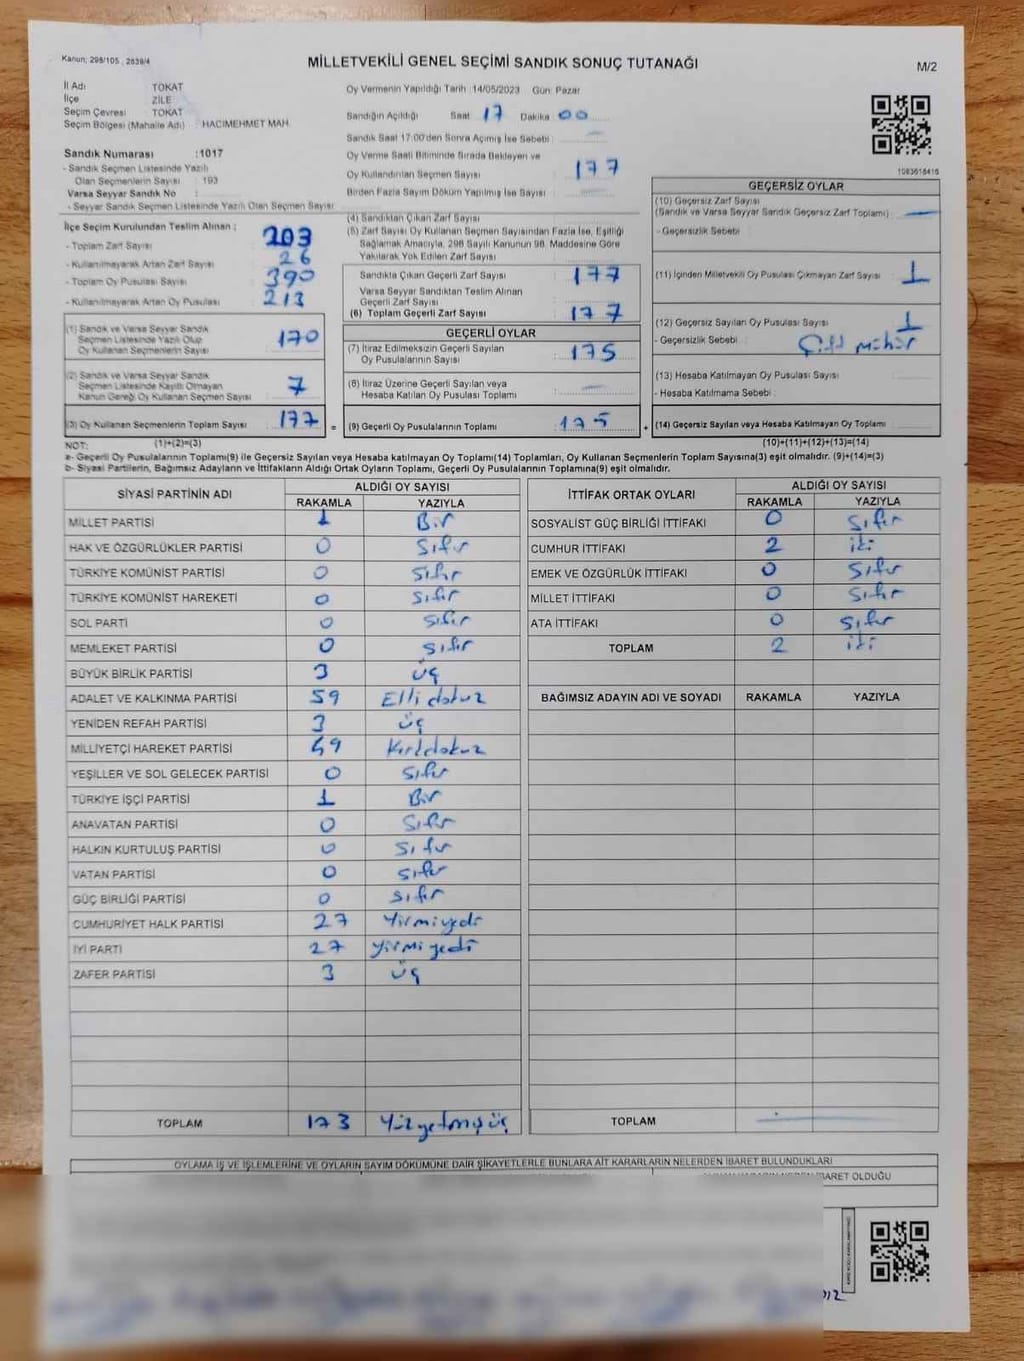 Kanun; 298/105 , 2839/4
MİLLETVEKİLİ GENEL SEÇİMİ SANDIK SONUÇ TUTANAĞI
M/2
İl Adı TOKAT
İlçe ZİLE
Seçim Çevresi TOKAT
Seçim Bölgesi (Mahalle Adı) : HACIMEHMET MAH.
Sandık Numarası :1017
- Sandık Seçmen Listesinde Yazılı
Olan Seçmenlerin Sayısı : 193
Varsa Seyyar Sandık No :
- Seyyar Sandık Seçmen Listesinde Yazılı Olan Seçmen Sayısı:
Oy Vermenin Yapıldığı Tarih :14/05/2023 Gün: Pazar
Sandığın Açıldığı Saat 17 Dakika 00
Sandık Saat 17:00'den Sonra Açılmış İse Sebebi : –
Oy Verme Saati Bitiminde Sırada Bekleyen ve
Oy Kullandırılan Seçmen Sayısı : 177
Birden Fazla Sayım Döküm Yapılmış İse Sayısı : –
İlçe Seçim Kurulundan Teslim Alınan ;
- Toplam Zarf Sayısı 203
- Kullanılmayarak Artan Zarf Sayısı 26
- Toplam Oy Pusulası Sayısı 390
- Kullanılmayarak Artan Oy Pusulası 213
(1) Sandık ve Varsa Seyyar Sandık
Seçmen Listesinde Yazılı Olup
Oy Kullanan Seçmenlerin Sayısı 170
(2) Sandık ve Varsa Seyyar Sandık
Seçmen Listesinde Kayıtlı Olmayan
Kanun Gereği Oy Kullanan Seçmen Sayısı 7
(3) Oy Kullanan Seçmenlerin Toplam Sayısı 177 =
(4) Sandıktan Çıkan Zarf Sayısı
(5) Zarf Sayısı Oy Kullanan Seçmen Sayısından Fazla İse, Eşitliği
Sağlamak Amacıyla, 298 Sayılı Kanunun 98. Maddesine Göre
Yakılarak Yok Edilen Zarf Sayısı
Sandıkta Çıkan Geçerli Zarf Sayısı 177
Varsa Seyyar Sandıktan Teslim Alınan
Geçerli Zarf Sayısı
(6) Toplam Geçerli Zarf Sayısı 177
GEÇERLİ OYLAR
(7) İtiraz Edilmeksizin Geçerli Sayılan
Oy Pusulalarının Sayısı : 175
(8) İtiraz Üzerine Geçerli Sayılan veya
Hesaba Katılan Oy Pusulası Toplamı : –
(9) Geçerli Oy Pusulalarının Toplamı : 175 +
1083618416
GEÇERSİZ OYLAR
(10) Geçersiz Zarf Sayısı
(Sandık ve Varsa Seyyar Sandık Geçersiz Zarf Toplamı) : –
- Geçersizlik Sebebi :
(11) İçinden Milletvekili Oy Pusulası Çıkmayan Zarf Sayısı : 1
(12) Geçersiz Sayılan Oy Pusulası Sayısı : 1
- Geçersizlik Sebebi : Çift mühür
(13) Hesaba Katılmayan Oy Pusulası Sayısı :
- Hesaba Katılmama Sebebi :
(14) Geçersiz Sayılan veya Hesaba Katılmayan Oy Toplamı :
NOT: (1)+(2)=(3)
(10)+(11)+(12)+(13)=(14)
a- Geçerli Oy Pusulalarının Toplamı(9) ile Geçersiz Sayılan veya Hesaba katılmayan Oy Toplamı(14) Toplamları, Oy Kullanan Seçmenlerin Toplam Sayısına(3) eşit olmalıdır. (9)+(14)=(3)
b- Siyasi Partilerin, Bağımsız Adayların ve İttifakların Aldığı Ortak Oyların Toplamı, Geçerli Oy Pusulalarının Toplamına(9) eşit olmalıdır.
SİYASİ PARTİNİN ADI ALDIĞI OY SAYISI
RAKAMLA YAZIYLA
MİLLET PARTİSİ 1 Bir
HAK VE ÖZGÜRLÜKLER PARTİSİ 0 Sıfır
TÜRKİYE KOMÜNİST PARTİSİ 0 Sıfır
TÜRKİYE KOMÜNİST HAREKETİ 0 Sıfır
SOL PARTİ 0 Sıfır
MEMLEKET PARTİSİ 0 Sıfır
BÜYÜK BİRLİK PARTİSİ 3 üç
ADALET VE KALKINMA PARTİSİ 59 Elli dokuz
YENİDEN REFAH PARTİSİ 3 üç
MİLLİYETÇİ HAREKET PARTİSİ 49 Kırkdokuz
YEŞİLLER VE SOL GELECEK PARTİSİ 0 Sıfır
TÜRKİYE İŞÇİ PARTİSİ 1 Bir
ANAVATAN PARTİSİ 0 Sıfır
HALKIN KURTULUŞ PARTİSİ 0 Sıfır
VATAN PARTİSİ 0 Sıfır
GÜÇ BİRLİĞİ PARTİSİ 0 Sıfır
CUMHURİYET HALK PARTİSİ 27 Yirmiyedi
İYİ PARTİ 27 yirmi yedi
ZAFER PARTİSİ 3 üç
TOPLAM 173 Yüzyetmişüç
İTTİFAK ORTAK OYLARI ALDIĞI OY SAYISI
RAKAMLA YAZIYLA
SOSYALİST GÜÇ BİRLİĞİ İTTİFAKI 0 Sıfır
CUMHUR İTTİFAKI 2 iki
EMEK VE ÖZGÜRLÜK İTTİFAKI 0 Sıfır
MİLLET İTTİFAKI 0 Sıfır
ATA İTTİFAKI 0 Sıfır
TOPLAM 2 iki
BAĞIMSIZ ADAYIN ADI VE SOYADI RAKAMLA YAZIYLA
TOPLAM
OYLAMA İŞ VE İŞLEMLERİNE VE OYLARIN SAYIM DÖKÜMÜNE DAİR ŞİKAYETLERLE BUNLARA AİT KARARLARIN NELERDEN İBARET BULUNDUKLARI
BARET OLDUĞU